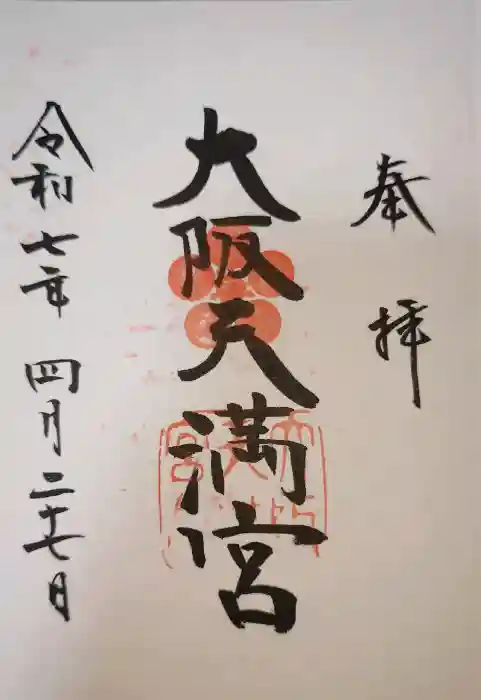 奉拝
大阪天満宮
令和七年四月二十七日